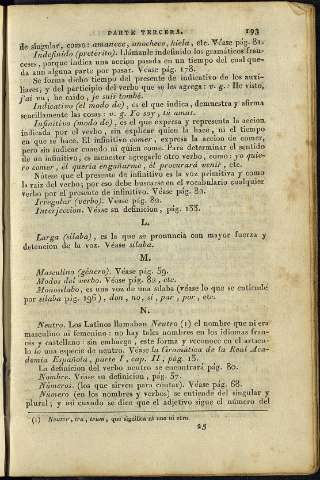 PARTE TERCERA. 193
de singular, como: amanece, anochece, hiela, etc. Véase pág. 81.
Indefinido (preterito). Llámanle indefinido los gramáticos fran-
ceses, porque indica una accion pasada en un tiempo del cual que-
da aun alguna parte por pasar. Véase pág. 178.
Se forma dicho tiempo del presente de indicativo de los auxi-
liares, y del participio del verbo que se les agrega: v. g.: He visto,
j'ai vu; he caido, je suis tombé.
Indicativo (el modo de), es el que indica, demuestra y afirma
sencillamente las cosas: v. g. Yo soy, tu amas.
Infinitivo (modo de), es el que expresa y representa la accion
indicada por el verbo, sin explicar quien la hace, ni el tiempo
en que se hace. El infinitivo comer, expresa la accion de comer,
pero sin indicar cuando ni quien come. Para determinar el sentido
de un infinitivo, es menester agregarle otro verbo, como: yo quie-
ro comer, él queria engañarme, él procurará venir, etc.
Nótese que el presente de infinitivo es la voz primitiva y como
la raiz del verbo; por eso debe buscarse en el vocabulario cualquier
verbo por el presente de infinitivo. Véase pág. 82.
Irregular (verbo). Véase pág. 89.
Interjeccion. Véase su definicion, pág. 133.
L.
Larga (sílaba), es la que se pronuncia con mayor fuerza y
detencion de la voz. Véase sílaba.
M.
Masculino (género). Véase pág. 59.
Modos del verbo. Véase pág. 82, etc.
Monosílabo, es una voz de una sílaba (véase lo que se entiende
por sílaba pág. 196), don, no, si, par, por, etc.
N.
Neutro. Los Latinos llamaban Neutro (1) el nombre que ni era
masculino ni femenino: no hay tales nombres en los idiomas fran-
ces y castellano: sin embargo, este forma y reconoce en el artícu-
lo lo una especie de neutro. Véase la Gramática de la Real Aca-
demia Española, parte I, cap. II, pág. 15.
La definicion del verbo neutro se encontrará pág. 80.
Nombre. Véase su definicion, pág. 57.
Números. (los que sirven para contar). Véase pág. 68.
Número (en los nombres y verbos) se entiende del singular y
plural; y así cuando se dice que el adjetivo sigue el número del
(1) Neuter, tra, trum, que significa ni uno ni otro.
25